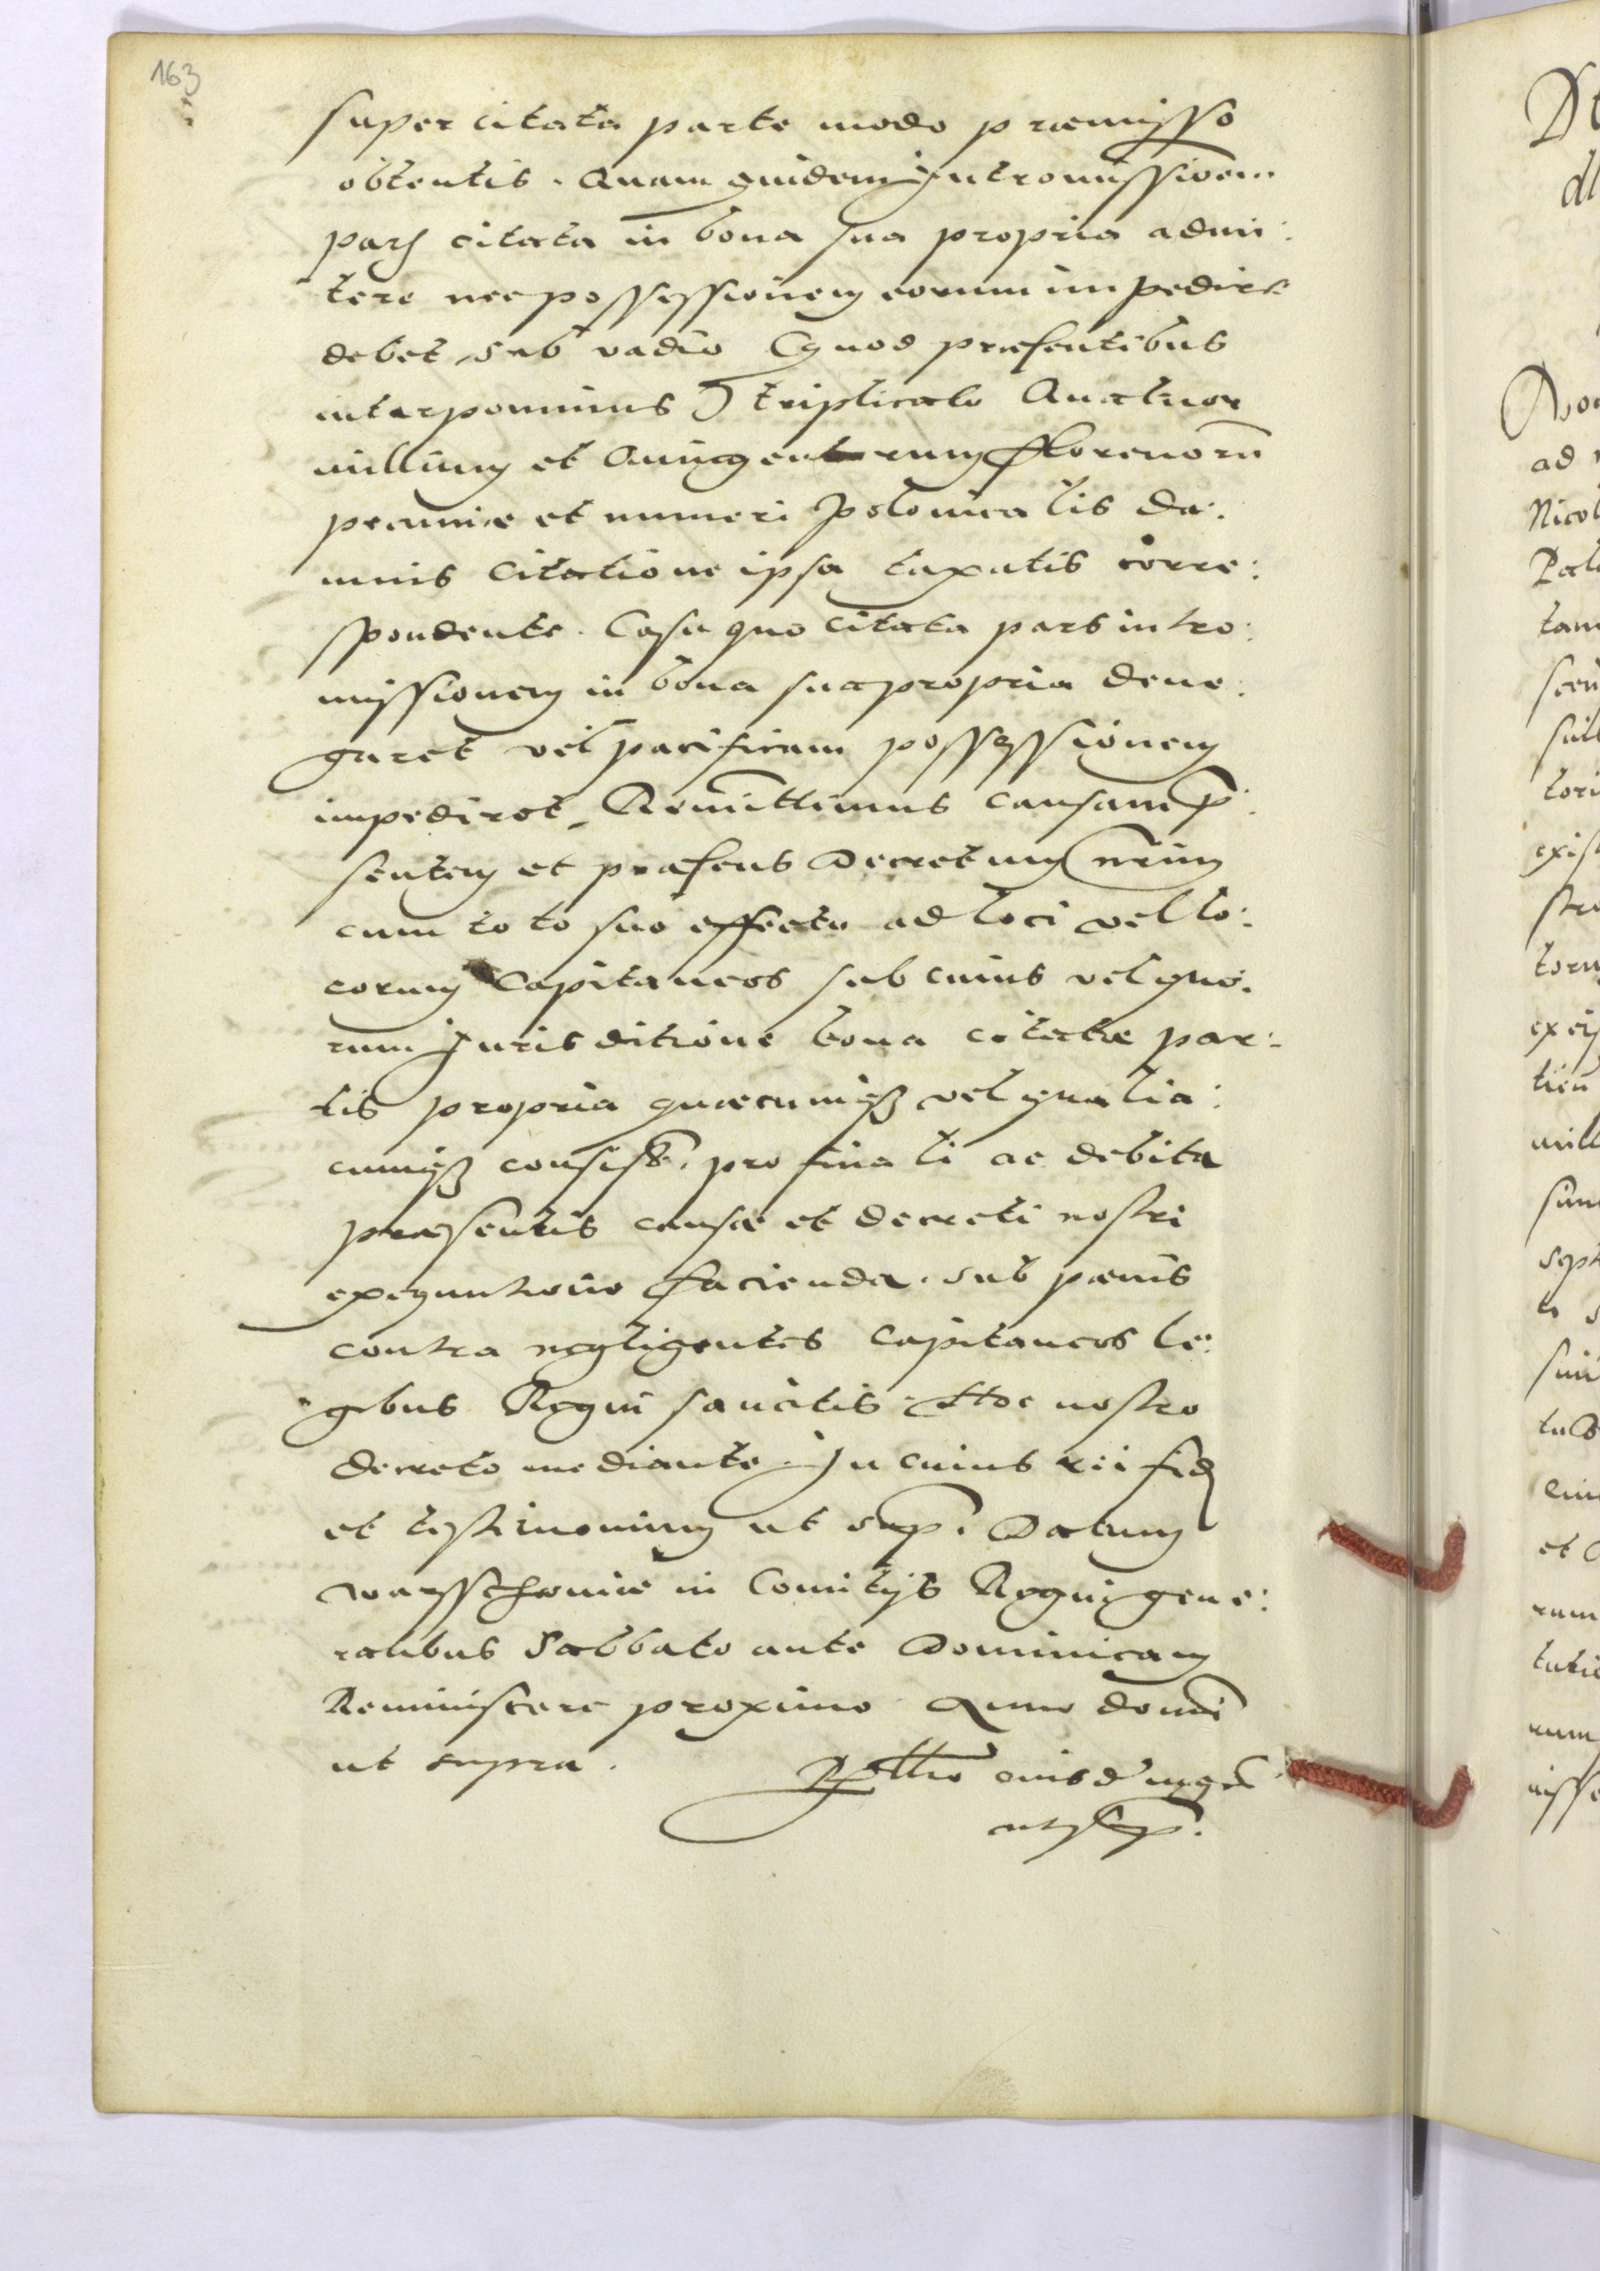 163
super citata parte modo præmisso
obtentis. Quam quidem Intromissionem
pars citata in bona sua propria admi:
tere nec possessionem eorum impedire
debet, sub vadio (quod præsentibus
interponimus) triplicato Quatuor
millium et Quingentorum fflorenorū
pecuniæ et numeri Polonicalis da:
mnis Citatione ipsa taxatis corre:
spondente. Casu quo citata pars intro:
missionem in bona sua propria dene:
garet vel pacificam possessionem
impediret, Remittimus causam p̄:
sentem et præsens Decretum nr̄um
cum toto suo effectu ad loci vel lo:
corum Capitaneos sub cuius vel quo:
rum Jurisditione bona citatæ par:
tis propria quæcumq3 vel qualia:
cumq3 consist. pro finali ac debita
præsentis causæ et decreti nostri
exequutione facienda. sub pœnis
contra negligentes Capitaneos le:
gibus Regni sancitis. Hoc nostro
Decreto mediante. In cuius rei fid
et testimonium ut sup. Datum
Warsschoviæ in Comitijs Regni gene:
ralibus Sabbato ante Dominicam
Reminiscere proximo Anno domi
ut supra.
eiusd
Nicol
ad
tam